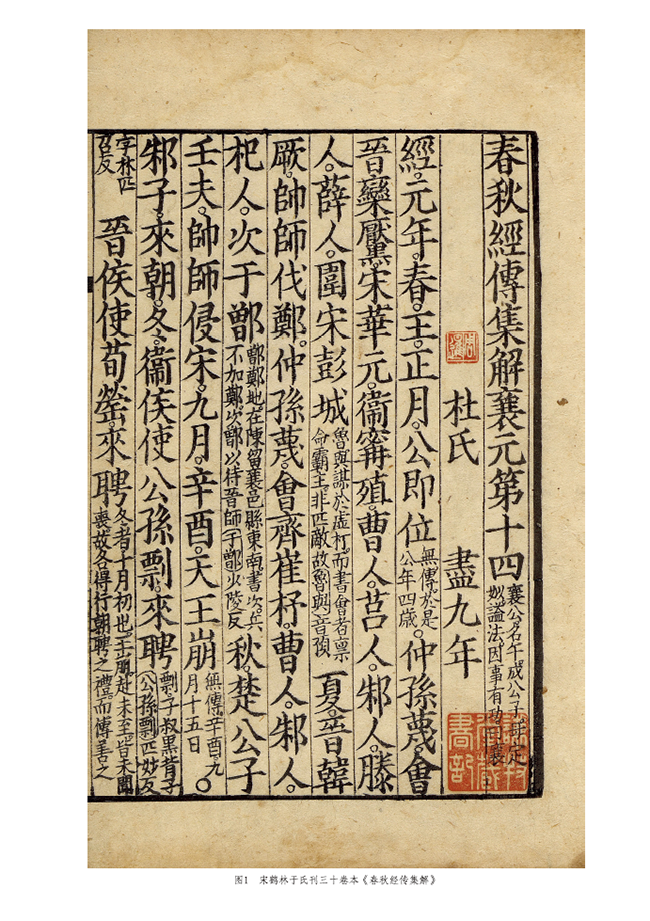 春秋經傳集解襄元第十四襄公名午成公子母定姒謚法因事有功曰襄
周暹
杜氏　盡九年
經。元年。春。王。正月。公即位無傳於是公年四歲。仲孫蔑。會
晉欒黶。宋華元。衛甯殖。曹人。莒人。邾人。滕
人。薛人。圍宋彭城魯與謀於虛朾。而書會者稟命霸主。非匹敵故魯與音預夏。晉韓
厥。帥師伐鄭。仲孫蔑。會齊崔杼。曹人。邾人。
杞人。次于鄫鄫鄭地。在陳留襄邑縣東南書次。兵不加鄭。次鄫以待晉師鄫才陵反秋。楚公子
壬夫。帥師侵宋。九月。辛酉。天王崩無傳。辛酉。九月十五日〇
邾子。來朝。冬。衛侯使公孫剽。來聘剽。子叔黑背子公孫剽匹妙反
字林匹召反晉侯使荀罃。來聘冬者。十月初也。王崩。赴未至。皆未聞喪。故各得行朝聘之禮。而傳善之
圖1　宋鹤林于氏刊三十卷本《春秋经传集解》